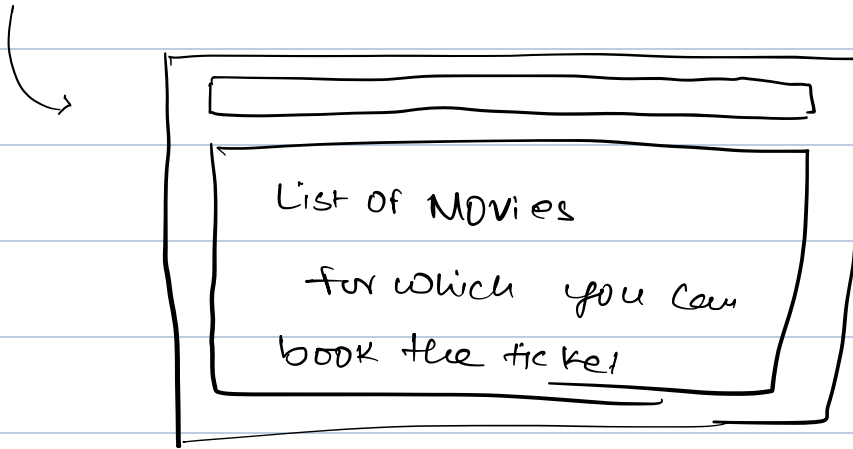 List of Movies
for which you can
book the ticket